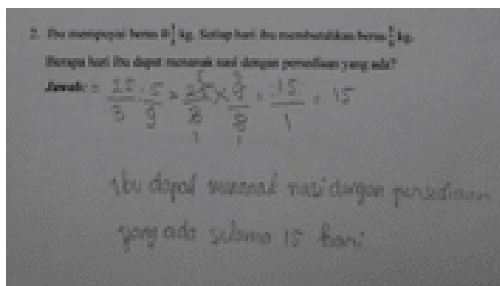 2. Ibu mempunyai beras 8 1/3 kg. Setiap hari ibu membutuhkan beras 5/9 kg.
Berapa hari ibu dapat menanak nasi dengan persediaan yang ada?
Jawab: = 25/3 : 5/9 = 25/3 × 9/5 = 15/1 = 15
ibu dapat menanak nasi dengan persediaan
yang ada selama 15 hari